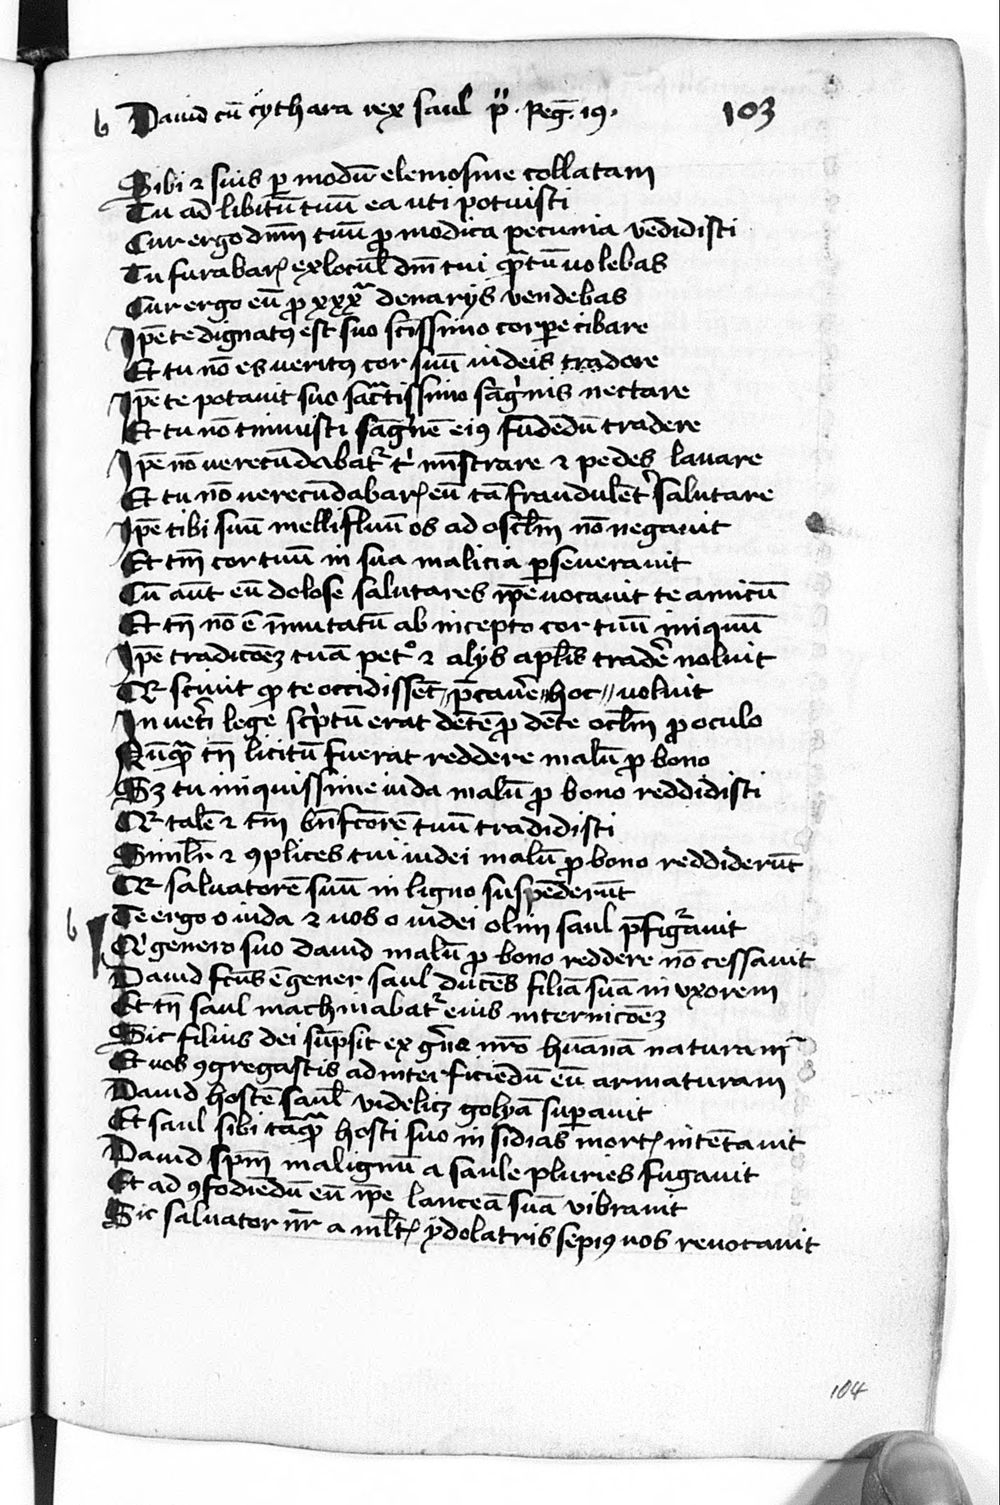 b Dauid cū cythara rex saul p̄ . Reg̅ . 19 . 103
Sibi ⁊ suis ꝑ modū elemosine collatam
Tu ad libitū tuū ea uti potuisti
Cur ergo dn̄m tuū ꝓ modica pecunia vēdidisti
Tu furabarꝭ ex locul̄ dn̄i tui qͣ̄tū uolebas
Cur ergo eū ꝓ xxxͣ denarijs vendebas
Ip̄e te dignatꝰ est suo sc̄issimo corꝑe cibare
Et tu nō es ueritꝰ cor suū iudeis tradere
Ip̄e te potauit suo sac̄tissimo sāgͥnis nectare
Et tu nō timuisti sāgͥnē eiꝰ fūdēdū tradere
Ip̄e nō uerecūdabat᷑ tͥ mī̄strare ⁊ pedes lauare
Et tu nō uerecūdabarꝭ eū tā fraudulēt᷑ salutare
Ip̄e tibi suū mellifluū os ad oscl̄m nō negauit
Et tn̄ cor tuū in sua malicia ꝑseuerauit
Cū aūt eū dolose salutares ip̄e uocauit te amicū
Et tn̄ nō ē īmutatū ab incepto cor tuū iniquū
Ip̄e tradicōeꝫ tuā petͦ ⁊ alijs apl̄is tradē noluit
Qr sciuit ꝙ te occidissēt p̄cauē hoc uoluit
In uetͥ lege scͥptū erat dētē ꝓ dēte ocl̄m ꝓ oculo
Nūqͣ̄ tn̄ licitū fuerat reddere malū ꝓ bono
Sꝫ tu iniquissime iuda malū ꝓ bono reddidisti
Qr talē ⁊ tm̄ bn̄fc̄orē tuū tradidisti
Simil̄r ⁊ ꝯplices tui iudei malū ꝓ bono reddiderūt
Qr saluatorē suū in ligno suspēderūt
b Te ergo o iuda ⁊ uos o iudei olim saul p̄figͣuit
Qͥ genero suo dauid malū ꝓ bono reddere nō cessauit
Dauid fc̄us ē gener saul ducēs filiā suā in vxorem
Et tn̄ saul machinabat᷑ eius internicōeꝫ
Sic filius dei sūpsit ex gn̄e nr̄o hūanā naturam
Et uos ꝯgregastis ad interficiēdū eū armaturam
Dauid hostē saul̄ videlicꝫ golyā suꝑauit
Et saul sibi tāqͣ̄ hosti suo insidias mortꝭ intētauit
Dauid sp̄m malignū a saule pluries fugauit
Et ad ꝯfodiēdū eū ip̄e lanceā suā vibrauit
Sic saluator nr̄ a ml̄tꝭ ydolatris sepiꝰ uos reuocauit
104